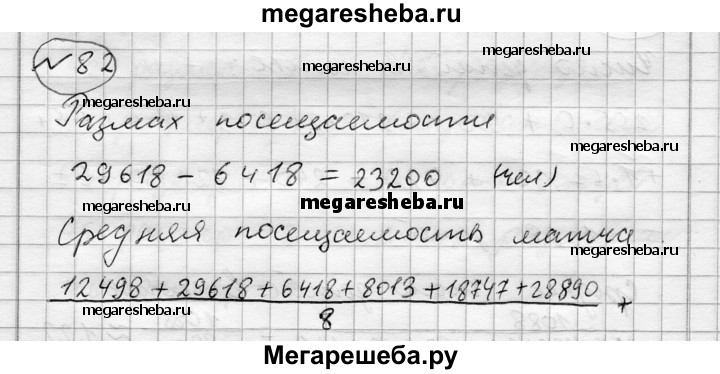 megaresheba.ru
№ 82
megaresheba.ru
megaresheba.ru
megaresheba.ru
Размах посещаемости
megaresheba.ru
megaresheba.ru
29618 - 6418 = 23200 (чел)
megaresheba.ru
megaresheba.ru
megaresheba.ru
Средняя посещаемость матча
12498 + 29618 + 6418 + 8013 + 18747 + 28890 +
8
megaresheba.ru
megaresheba.ru
Мегарешеба.ру